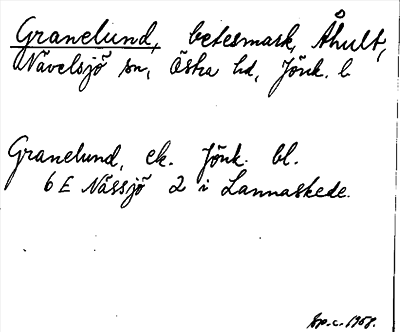 Granelund, betesmark, Åhult,
Nävelsjö sn, Östra hd, Jönk. l
Granelund, ek. Jönk. bl.
6 E Nässjö 2 i Lannaskede.